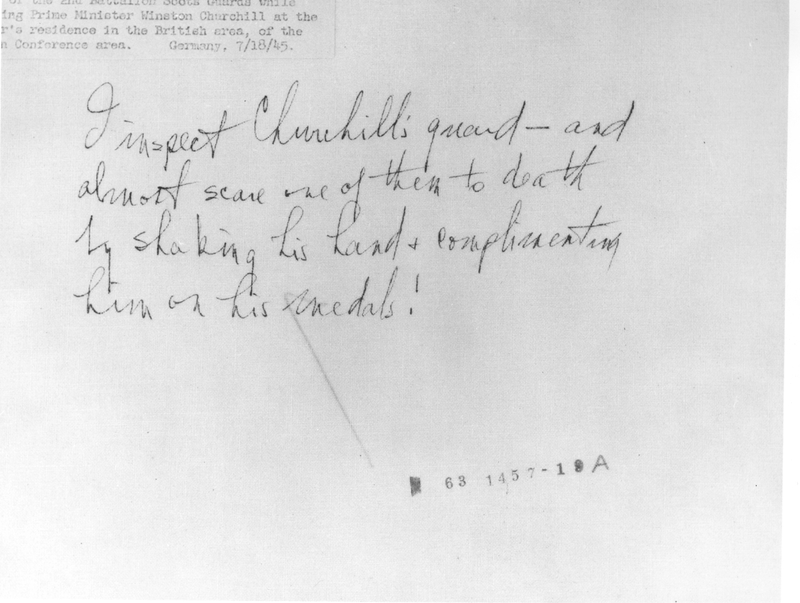 of the 2nd Battalion Scots Guards while
ing Prime Minister Winston Churchill at the
r's residence in the British area, of the
n Conference area. Germany, 7/18/45.
I inspect Churchill's guard — and
almost scare one of them to death
by shaking his hand & complimenting
him on his medals!
63 1457-19A